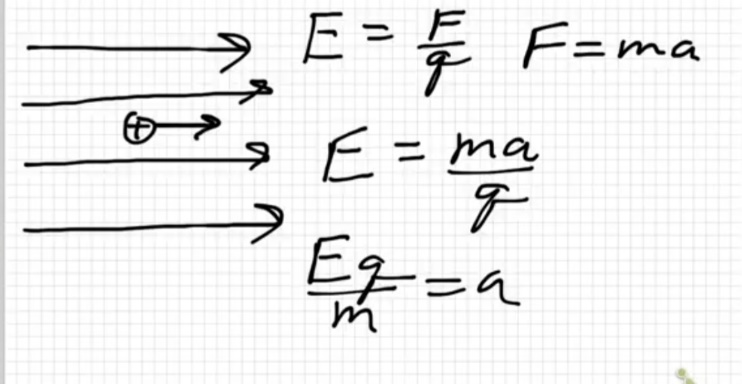 E = F/q F = ma
E = ma/q
Eq/m = a